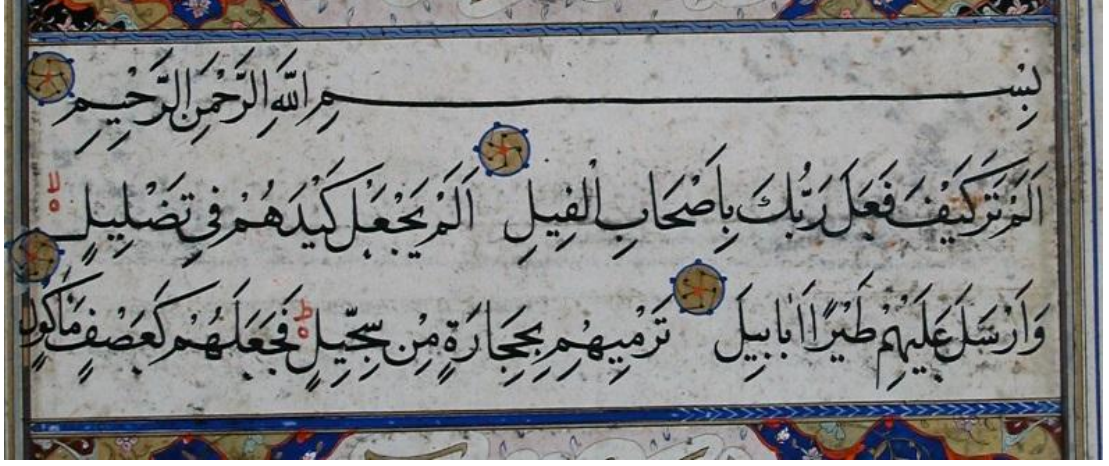 بِسْمِ اللَّهِ الرَّحْمَنِ الرَّحِيمِ
اَلَمْ تَرَ كَيْفَ فَعَلَ رَبُّكَ بِاَصْحَابِ الْفِيلِ اَلَمْ يَجْعَلْ كَيْدَهُمْ فِي تَضْلِيلٍ لا
وَاَرْسَلَ عَلَيْهِمْ طَيْرًا اَبَابِيلَ تَرْمِيهِمْ بِحِجَارَةٍ مِنْ سِجِّيلٍ ط فَجَعَلَهُمْ كَعَصْفٍ مَأْكُولٍ